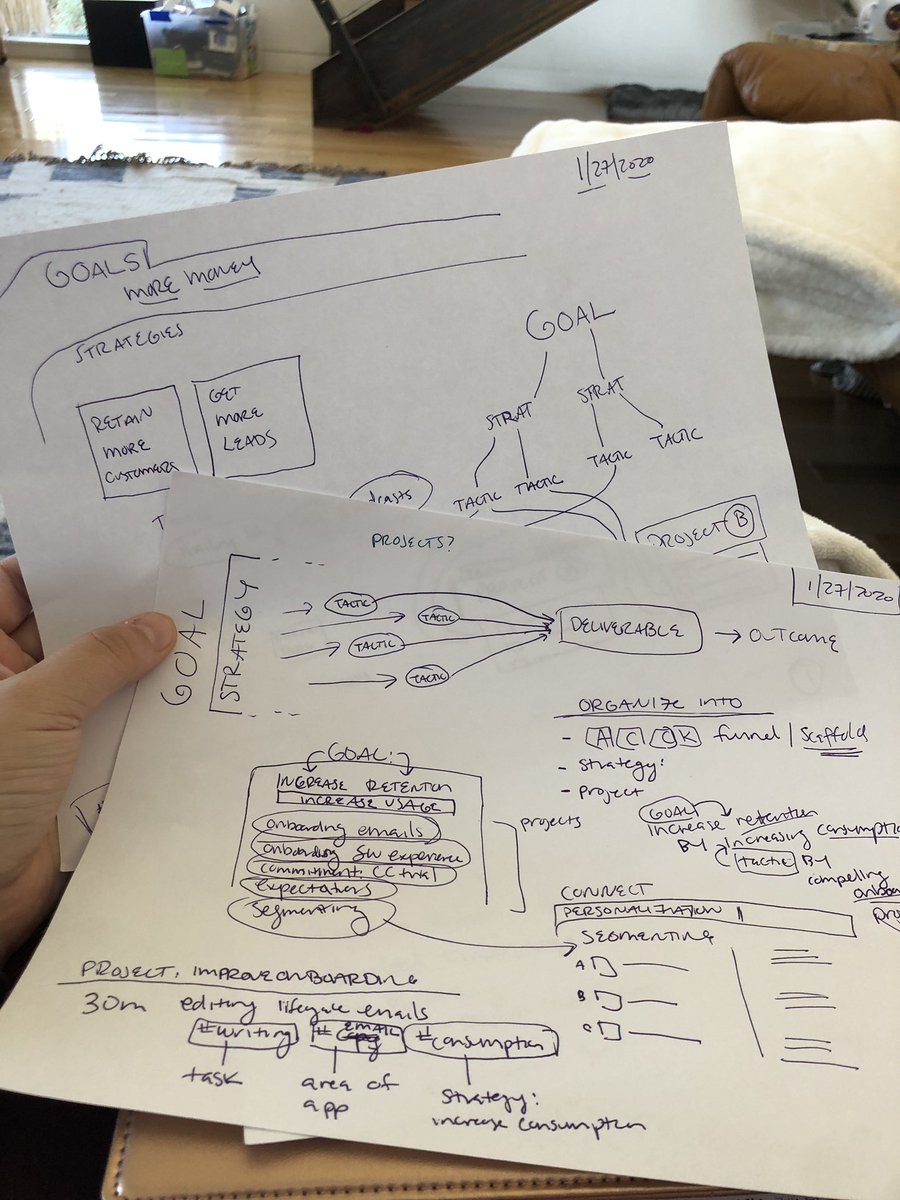 1/27/2020
GOALS
MORE MONEY
STRATEGIES
RETAIN
MORE
CUSTOMERS
GET
MORE
LEADS
GOAL
STRAT
STRAT
TACTIC
TACTIC
TACTIC
TACTIC
PROJECT B
PROJECTS?
1/27/2020
GOAL
STRATEGY
TACTIC
TACTIC
TACTIC
TACTIC
DELIVERABLE
OUTCOME
ORGANIZE INTO
- A C C K funnel / Scaffold
- Strategy:
- project
GOAL:
INCREASE RETENTION
INCREASE USAGE
onboarding emails
onboarding SW experience
commitment: CC trial
expectations
segmenting
projects
GOAL
increase retention
By increasing consumption
tactic By
compelling
CONNECT
PERSONALIZATION
SEGMENTING
A
B
C
PROJECT: IMPROVE ONBOARDING
30m editing lifecycle emails
#writing #EMAIL #consumption
task
area of
app
strategy:
increase consumption